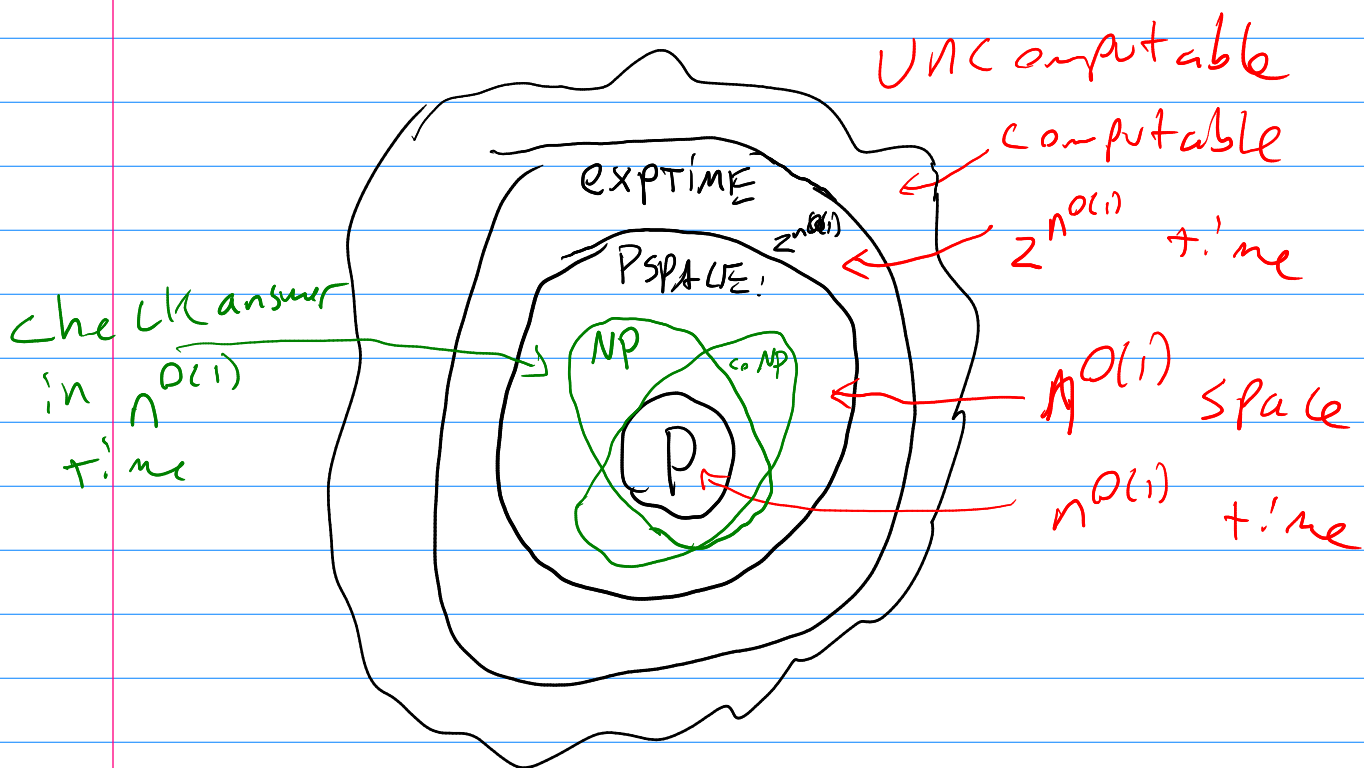 Uncomputable
computable
EXPTIME
2^{n^{O(1)}}
2^{n^{O(1)}} time
PSPACE
check answer
in n^{O(1)}
time
NP
co NP
n^{O(1)} space
P
n^{O(1)} time